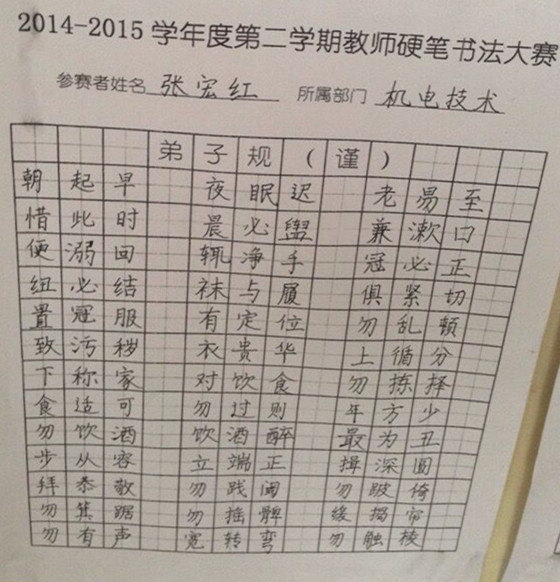 2014-2015 学年度第二学期教师硬笔书法大赛
参赛者姓名 张宏红 所属部门 机电技术
弟子规（谨）
朝起早 夜眠迟 老易至
惜此时 晨必盥 兼漱口
便溺回 辄净手 冠必正
纽必结 袜与履 俱紧切
置冠服 有定位 勿乱顿
致污秽 衣贵华 上循分
下称家 对饮食 勿拣择
食适可 勿过则 年方少
勿饮酒 饮酒醉 最为丑
步从容 立端正 揖深圆
拜恭敬 勿践阈 勿跛倚
勿箕踞 勿摇髀 缓揭帘
勿有声 宽转弯 勿触棱